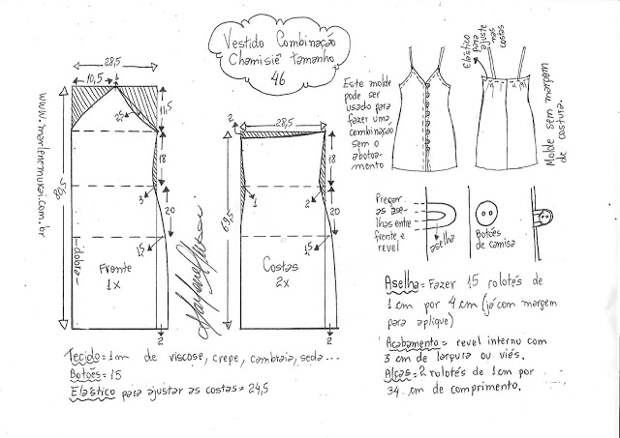 Vestido Combinação
Chamisiê tamanho
46
28,5
10,5
25
11,5
18
3
20
15
80,5
dobra
Frente
1x
2
www.marlenemukai.com.br
28,5
2
18
1
2
20
15
69,5
Costas
2x
2
Este molde
pode ser
usado para
fazer uma
combinação
sem o
abotoa-
mento
Elástico
para
ajuste
nas
costas
Molde sem margem
de costura.
Pregar
as ase-
lhas entre
frente e
revel
aselha
Botões
de camisa
Aselha = Fazer 15 rolotés de
1 cm por 4 cm (já com margem
para aplique)
Acabamento = revel interno com
3 cm de largura ou viés.
Alças = 2 rolotés de 1 cm por
34 cm de comprimento.
Tecido = 1m de viscose, crepe, cambraia, seda...
Botões = 15
Elástico para ajustar as costas = 24,5